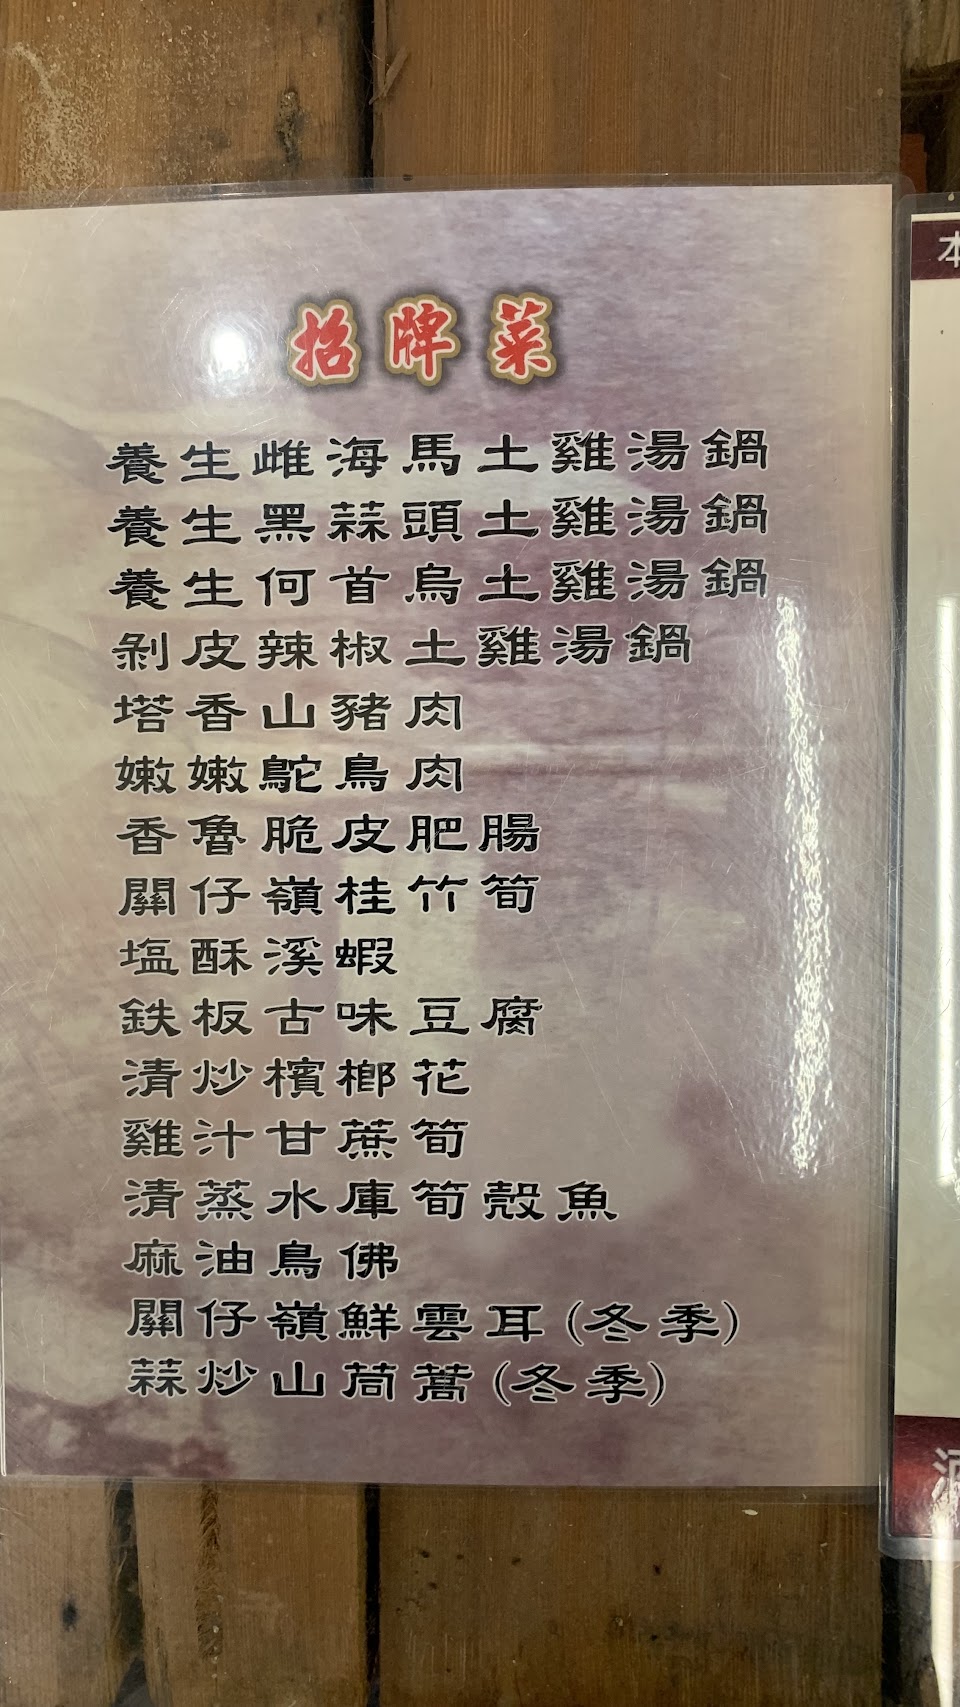 招牌菜
養生雌海馬土雞湯鍋
養生黑蒜頭土雞湯鍋
養生何首烏土雞湯鍋
剝皮辣椒土雞湯鍋
塔香山豬肉
嫩嫩鴕鳥肉
香魯脆皮肥腸
關仔嶺桂竹筍
塩酥溪蝦
鉄板古味豆腐
清炒檳榔花
雞汁甘蔗筍
清蒸水庫筍殼魚
麻油鳥佛
關仔嶺鮮雲耳(冬季)
蒜炒山茼蒿(冬季)
本